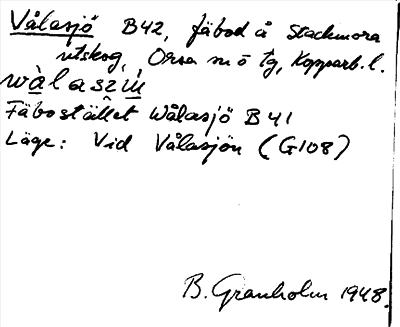 Vålasjö B42, fäbod å Stackmora
utskog, Orsa sn ö tg, Kopparb. l.
wàlaszìú
Fäbostället Wålasjö B41
Läge: Vid Vålasjön (G108)
B. Granholm 1948.